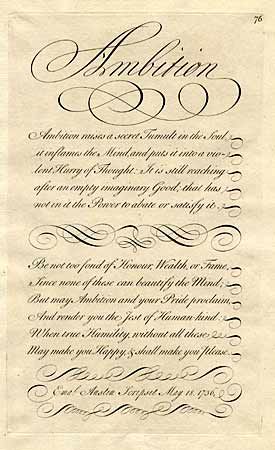 76
Ambition
Ambition raises a secret Tumult in the Soul,
it inflames the Mind, and puts it into a vio-
lent Hurry of Thought: It is still reaching
after an empty imaginary Good, that has
not in it the Power to abate or satisfy it.
Be not too fond of Honour, Wealth, or Fame,
Since none of these can beautify the Mind;
But may Ambition and your Pride proclaim,
And render you the Jest of Human-kind.
When true Humility, without all these
May make you Happy, & shall make you Please.
Eman.l Austin Scripsit May 18. 1736.